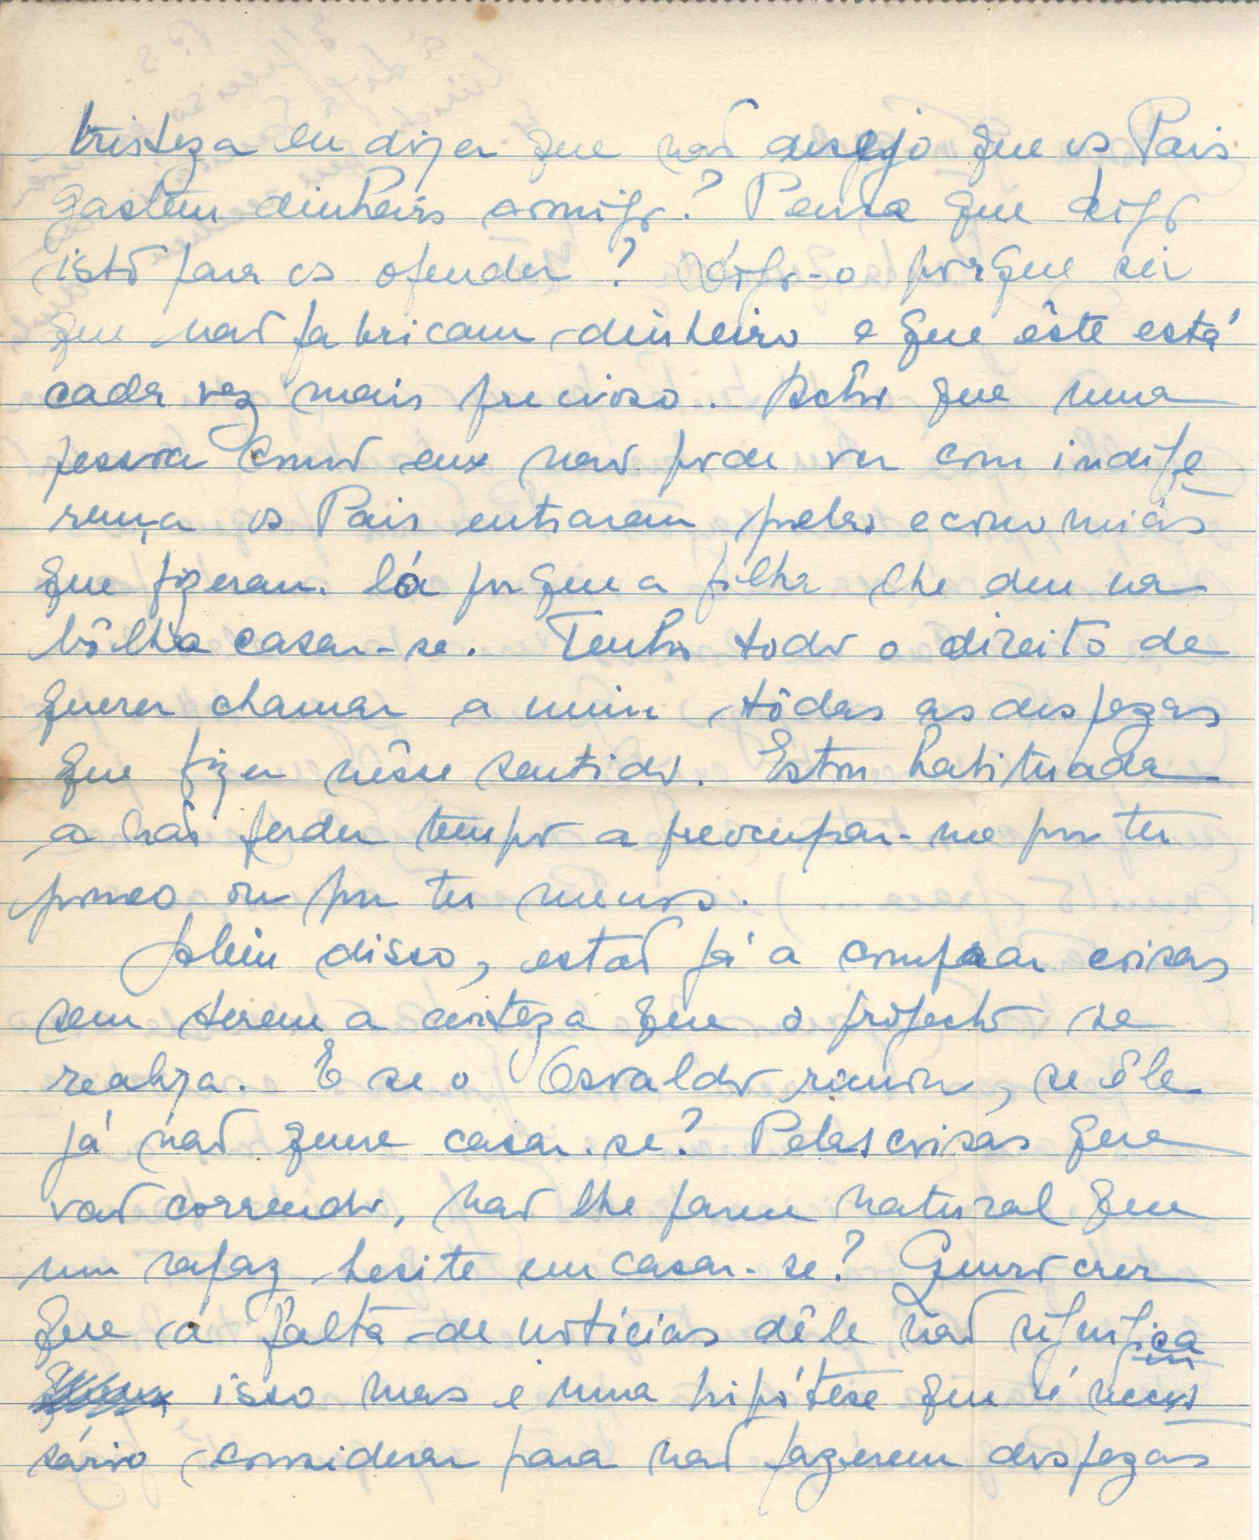 tristeza eu dizer que não desejo que os Pais
gastem dinheiro comigo? Pensa que digo
isto para os ofender? Digo-o porque sei
que não fabricam dinheiro e que êste está
cada vez mais precioso. Acho que uma
pessoa como eu não pode ver com indife
rença os Pais entrarem pelas economias
que fizeram lá porque a filha lhe deu na
bôlha casar-se. Tenho todo o direito de
querer chamar a mim tôdas as despezas
que fizer nêsse sentido. Estou habituada
a não perder tempo a preocupar-me por ter
pouco ou por ter menos.
Além disso, estão já a comprar coisas
sem terem a certeza que o projecto se
realiza. E se o Osvaldo
já não quere casar-se? Pelas coisas que
vão correndo, não lhe parece natural que
um rapaz hesite em casar-se? Quero crer
que a falta de notícias dêle não significa
isso mas é uma hipótese que é neces
sário considerar para não fazerem despezas